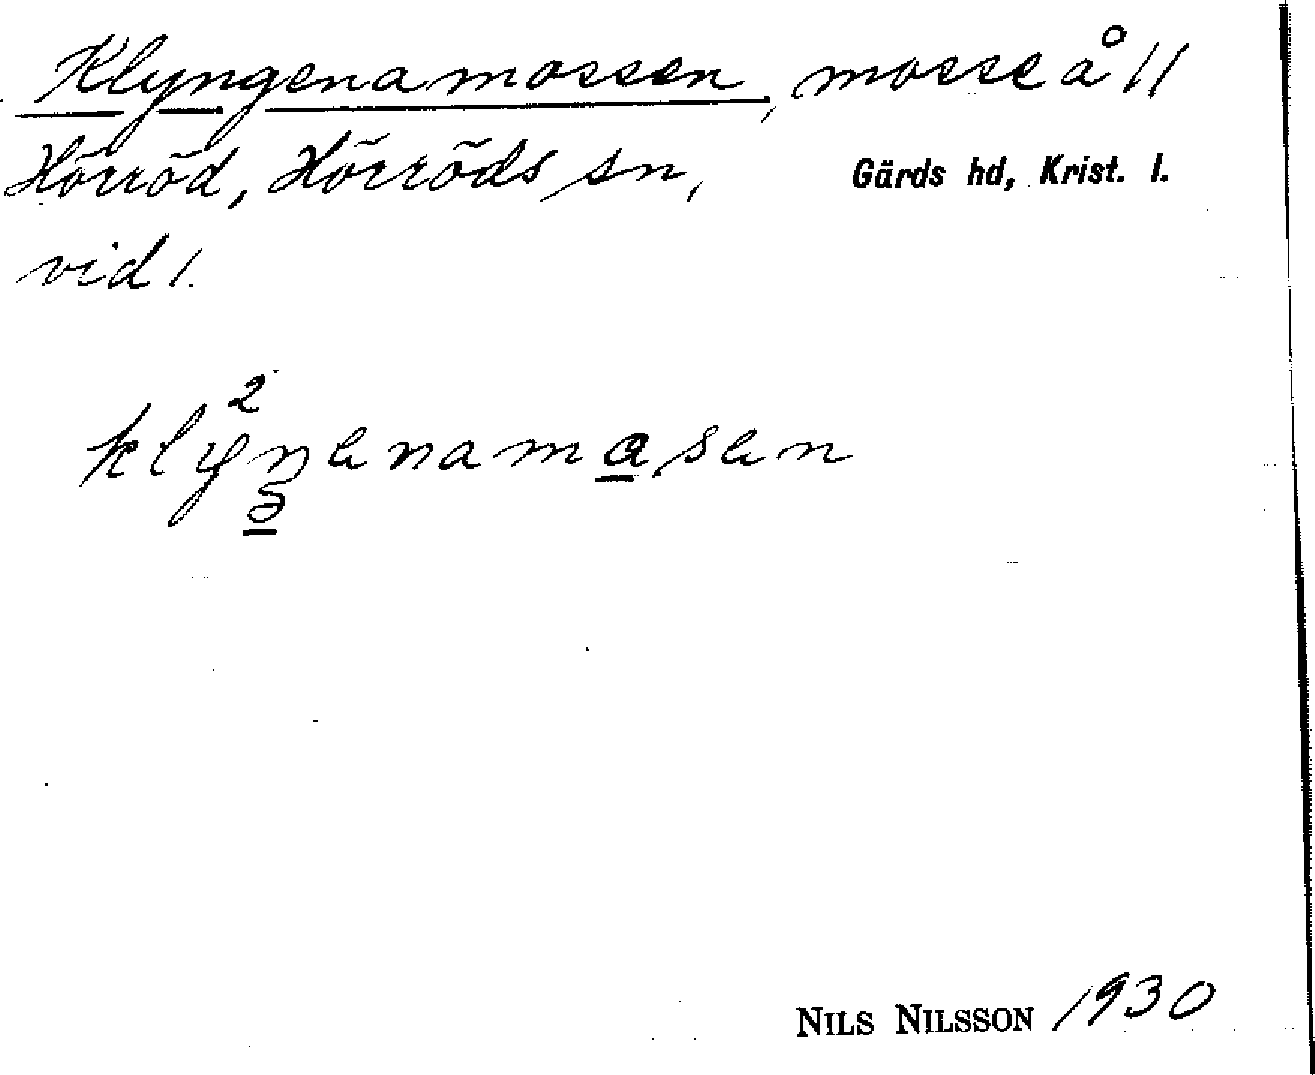 Klyngenamossen, mosse å 11
Hörröd, Hörröds sn, Gärds hd, Krist. l.
vid 1.
2
klyŋenamasen
NILS NILSSON 1930